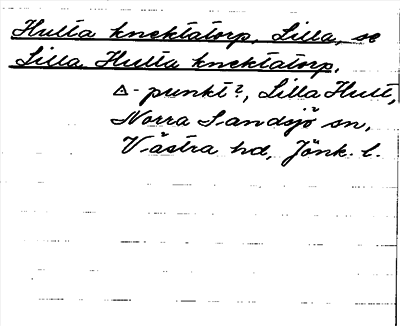 Hulta knektatorp, Lilla, se
Lilla Hulta knektatorp.
△-punkt?, Lilla Hult,
Norra Sandsjö sn,
Västra hd, Jönk. l.